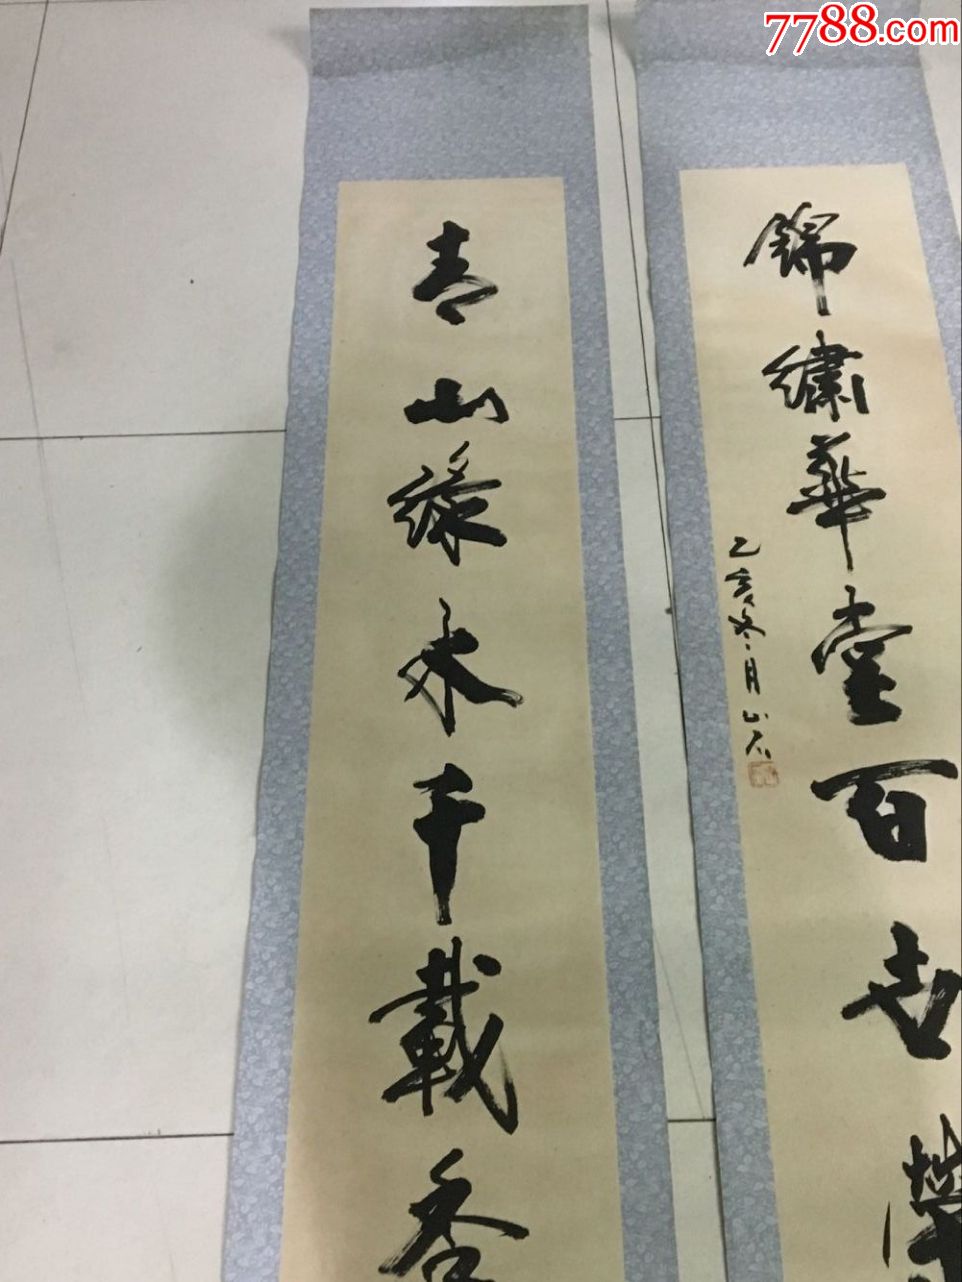 7788.com
錦繡華堂百世榮
乙亥冬月山石
青山綠水千載香